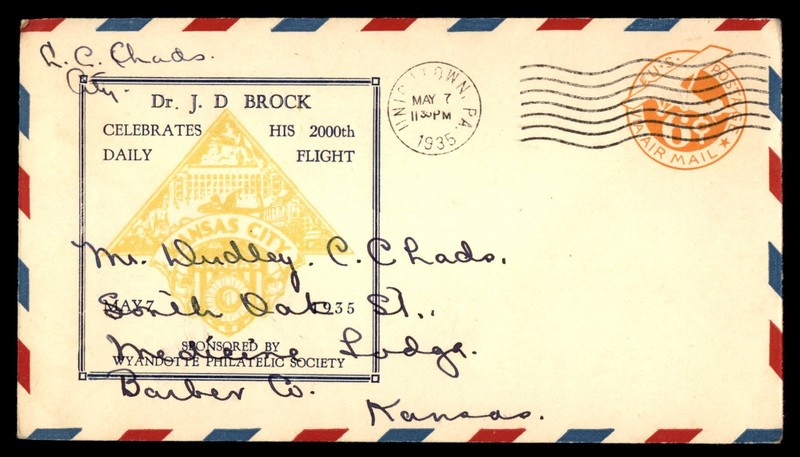 C. C. Chads.
City.
Dr. J. D BROCK
CELEBRATES HIS 2000th
DAILY FLIGHT
KANSAS CITY
MAY 7 1935
SPONSORED BY
WYANDOTTE PHILATELIC SOCIETY
UNIONTOWN, PA.
MAY 7
11 30 PM
1935
U.S. POSTAGE
VIA AIR MAIL
Mr. Dudley. C. Chads.
South Oak St.,
Medicine Lodge.
Barber Co.
Kansas.